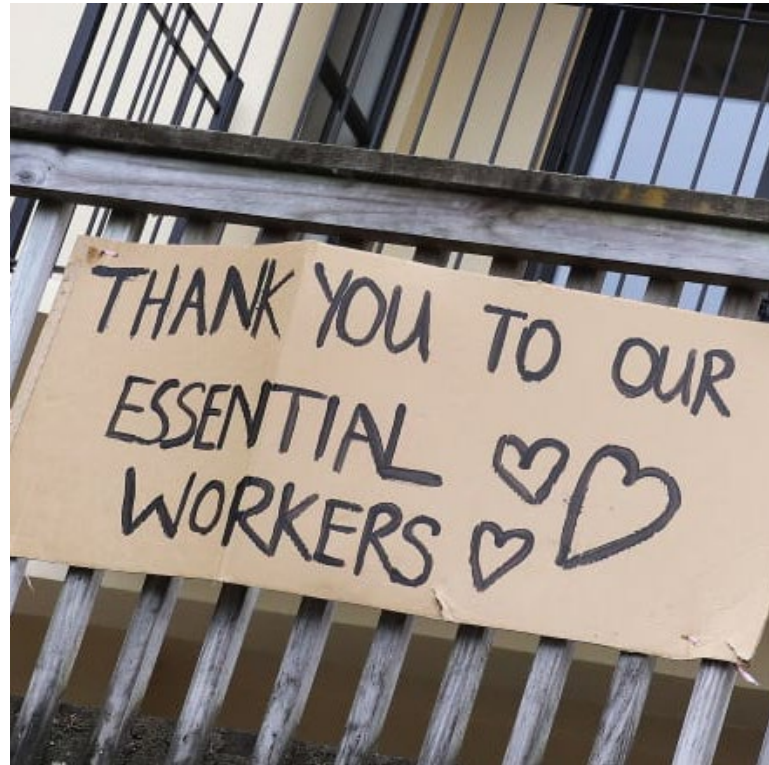 THANK YOU TO OUR
ESSENTIAL
WORKERS